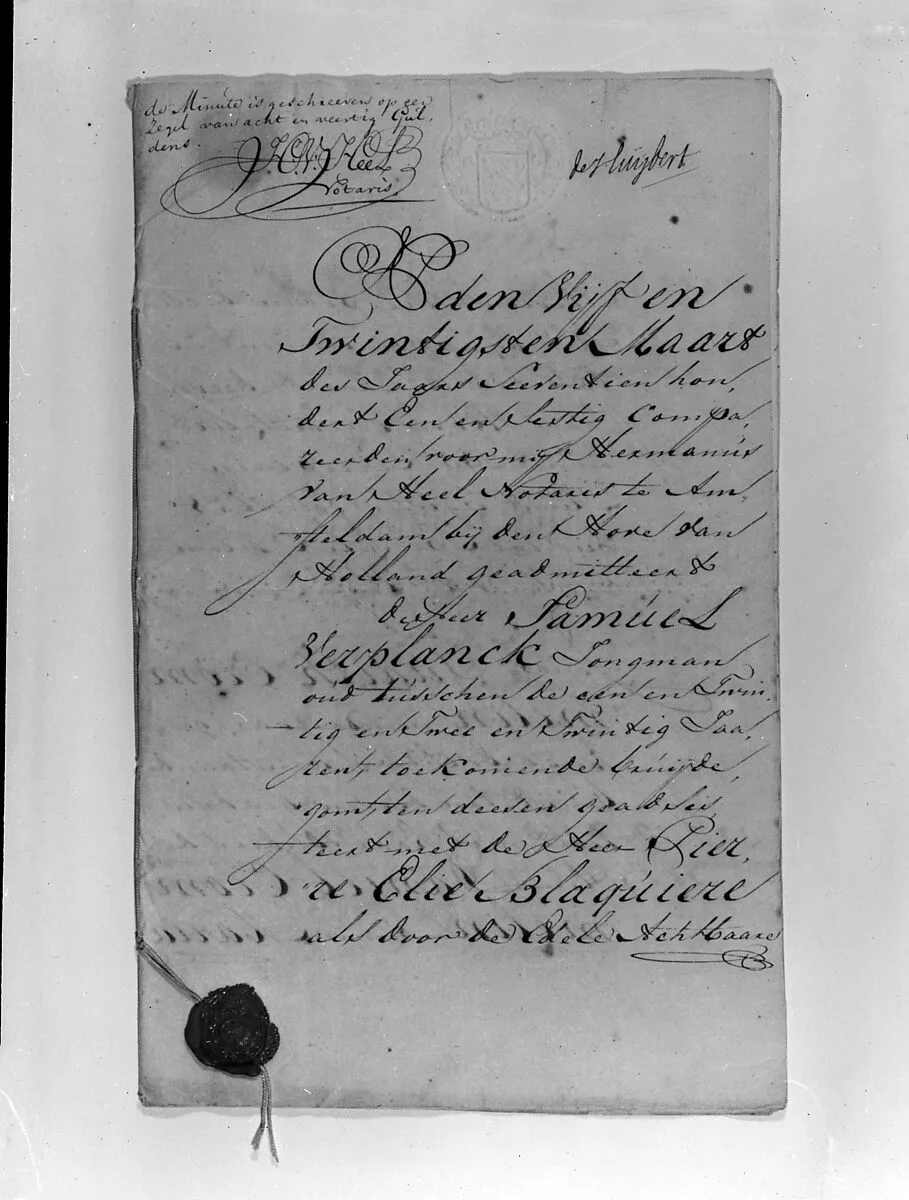 de Minúte is geschreeven op een
Zegel van acht en veertig Gul-
dens.
H. V. Heel
Notaris
de Huijbert
Op den Vijf en
Twintigsten Maart
des Jaars Seeventien hon,
dert Een en Sestig Compa,
reerden voor mij Hermanús
van Heel Notaris te Am,
steldam bij den Hove van
Holland geadmitteert
de Heer Samúel
Verplanck Jongman
oúd tússchen de een en Twin,
tig en Twee en Twintig Jaa,
ren, toekomende brúijde,
gom, ten deesen geadsis,
teert met de Heer Pier,
re Elie Blaqúiere
als door de Edele Achtbaare